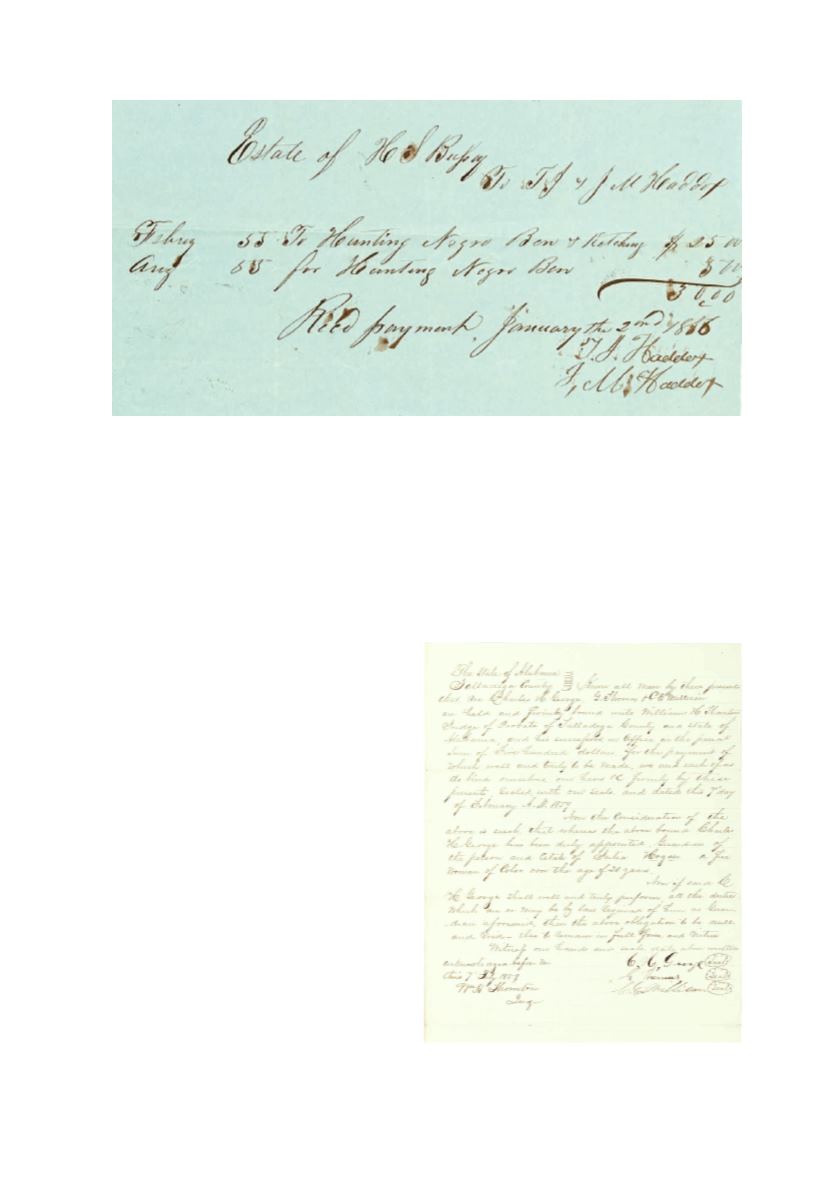 Estate of H S Bussey
To T J & J M Haddox
Febry 55 To Hunting Negro Ben & Ketching $ 25 00
Aug 55 for Hunting Negro Ben 5 00
30,00
Recd payment January the 2nd 1856
T. J. Haddox
J, M, Haddox
The State of Alabama
Talladega County Know all Men by these presents
that we Charles H George G. Thomas & C
are held and firmly bound unto William H Thornton
Judge of Probate of Talladega County and State of
Alabama, and his successors in Office in the penal
Sum of Five Hundred dollars for the payment of
which well and truly to be made, we and each of us
do bind ourselves our heirs &c firmly by these
presents, Sealed with our seals and dated this 7 day
of February A.D. 1859
Now the Consideration of the
above is such, that whereas the above bound Charles
H. George has been duly appointed Guardian of
the person and estate of Hogan a free
woman of Color over the age of 21 years.
Now if said C
H George shall well and truly perform all the duties
which are or may be by law required of him as Guar-
dian aforesaid, then the above obligation to be null
and void - else to remain in full force and virtue
Witness our hands and seals, date above written
before me C. George Seal
this 7 Feby 1859 G Thomas Seal
Wm H Thornton Seal
Judge